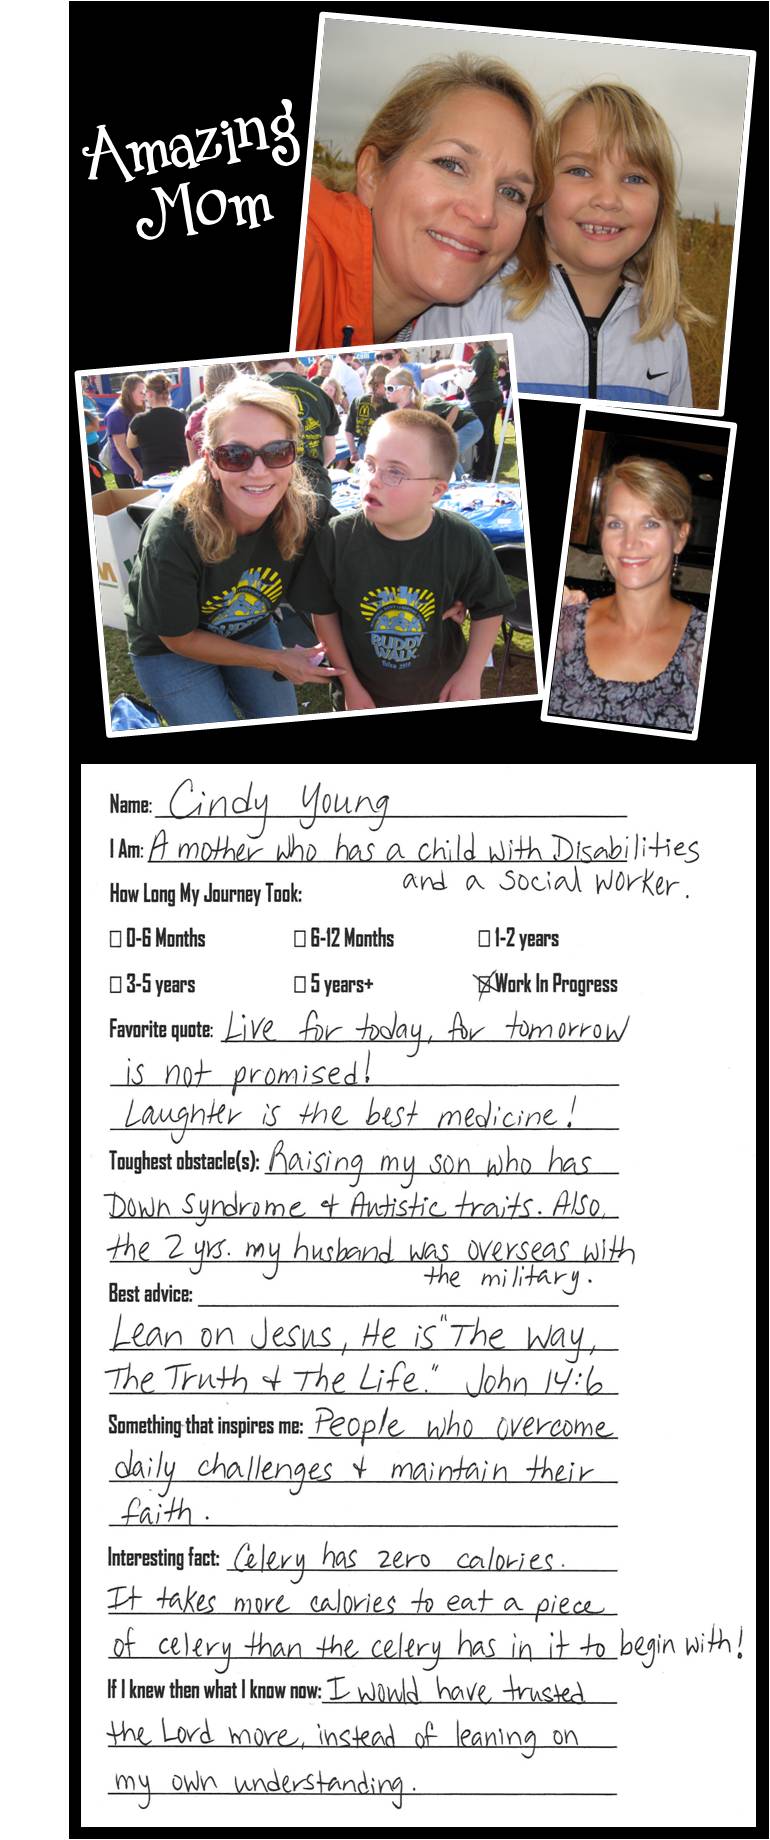 Amazing
Mom
BUDDY
WALK
Name: Cindy Young
I Am: A mother who has a child with Disabilities
and a social worker.
How Long My Journey Took:
☐ 0-6 Months ☐ 6-12 Months ☐ 1-2 years
☐ 3-5 years ☐ 5 years+ ☒ Work In Progress
Favorite quote: Live for today, for tomorrow
is not promised!
Laughter is the best medicine!
Toughest obstacle(s): Raising my son who has
Down Syndrome & Autistic traits. Also,
the 2 yrs. my husband was overseas with
the military.
Best advice:
Lean on Jesus, He is "The Way,
The Truth & The Life." John 14:6
Something that inspires me: People who overcome
daily challenges & maintain their
faith.
Interesting fact: Celery has zero calories.
It takes more calories to eat a piece
of celery than the celery has in it to begin with!
If I knew then what I know now: I would have trusted
the Lord more, instead of leaning on
my own understanding.